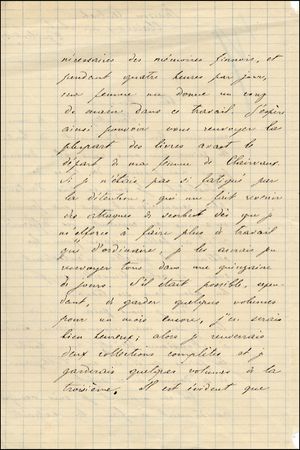 nécessaires des mémoires finnois, et
pendant quatre heures par jour,
ma femme me donne un coup
de main dans ce travail. J'espère
ainsi pouvoir vous renvoyer la
plupart des livres avant le
départ de ma femme de Clairvaux.
Si je n'étais pas si fatigué par
la détention, qui me fait revenir
des attaques de scorbut dès que je
m'efforce à faire plus de travail
que d'ordinaire, je les aurais pu
renvoyer tous dans une quinzaine
de jours. S'il était possible, cepen-
dant, de garder quelques volumes
pour un mois encore, j'en serais
bien heureux; alors je renverrais
deux collections complètes et je
garderais quelques volumes de la
troisième. Il est évident que